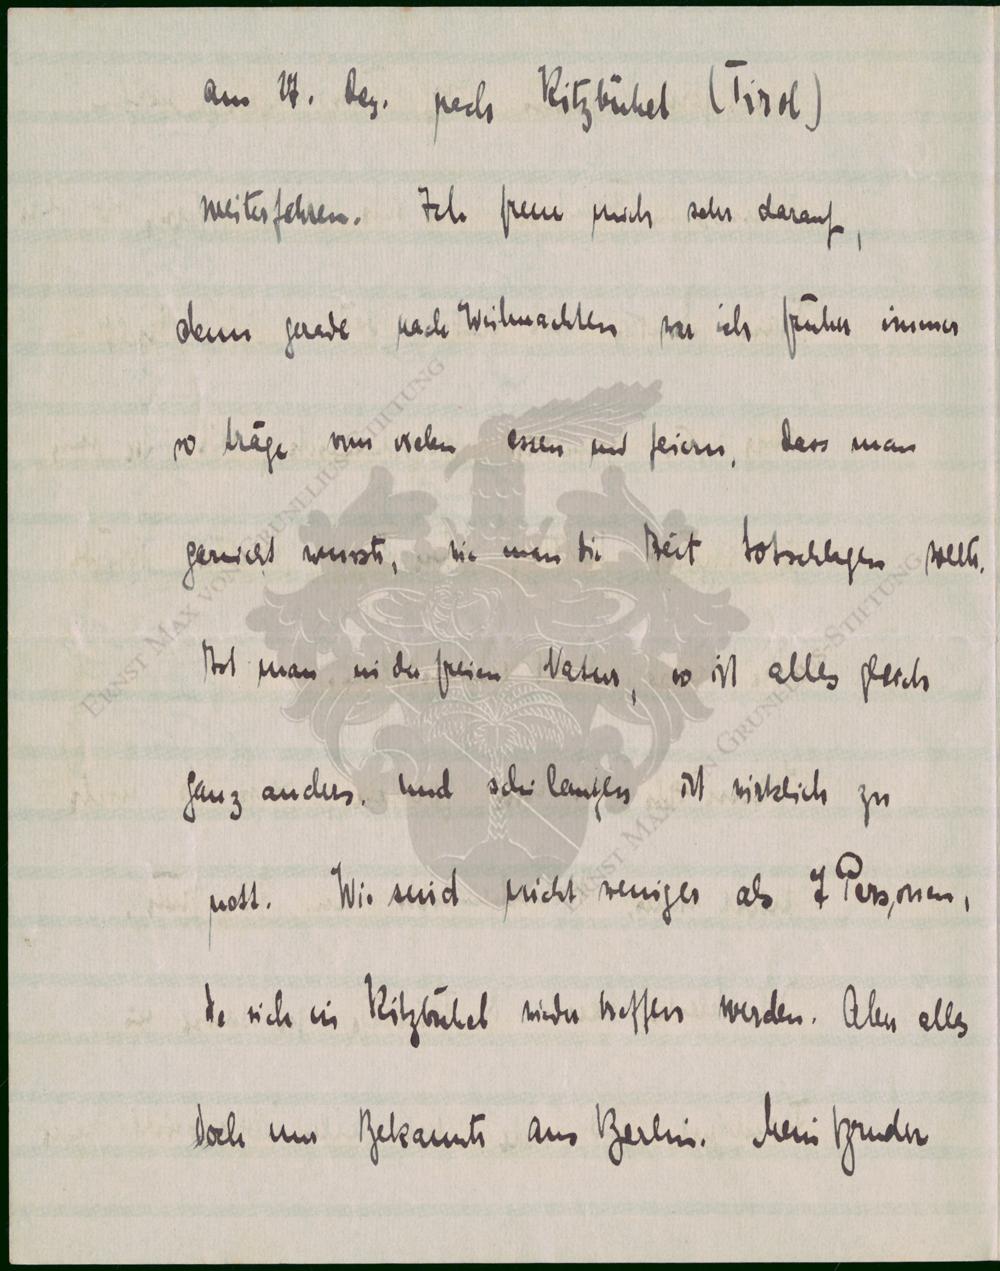 am 27. Dez. nach Kitzbühel (Tirol)
weiterfahren. Ich freue mich sehr darauf,
denn gerade nach Weihnachten war ich früher immer
so träge vom vielen essen und feiern, dass man
garnicht wusste, wie man die Zeit totschlagen sollte.
Ist man in der freien Natur, so ist alles gleich
ganz anders, und schilaufen ist wirklich zu
nett. Wir sind nicht weniger als 7 Personen,
die sich in Kitzbühel wieder treffen werden. Aber alles
doch nur Bekannte aus Berlin. Mein Bruder
ERNST MAX VON GRUNELIUS-STIFTUNG
ERNST MAX VON GRUNELIUS-STIFTUNG